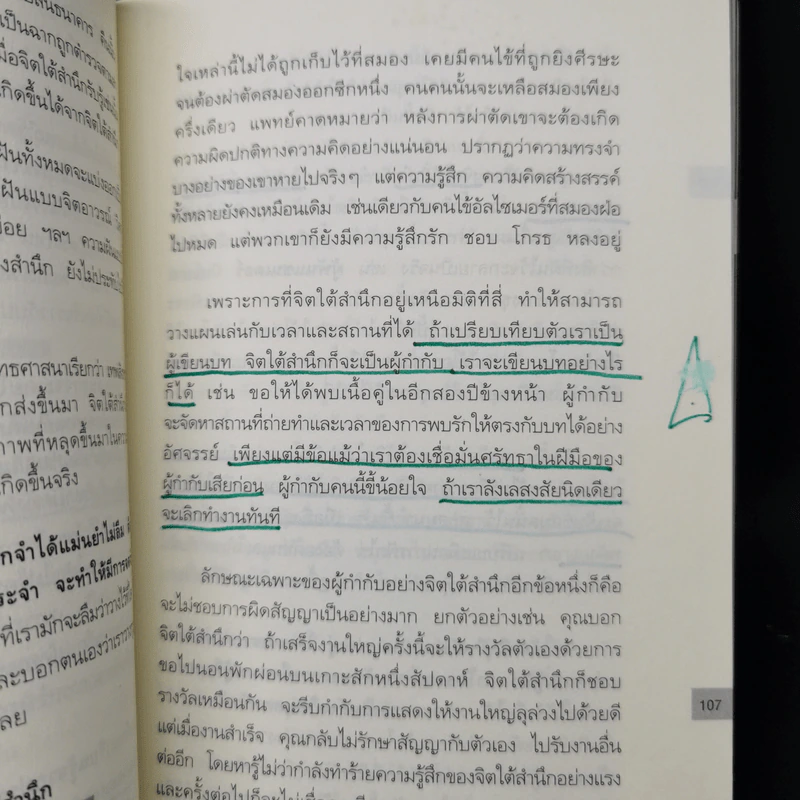 เป็นฉากถูกตำรวจตาม
เกิดขึ้นได้จากจิตใต้สำนึก
ฝันทั้งหมดจะแบ่งออก
ฝันแบบจิตอาวรณ์
ย่อย ฯลฯ
งสำนึก ยังไม่ประทับ
ทธศาสนาเรียกว่า
กส่งขึ้นมา จิตใต้สำนึก
ภาพที่หลุดขึ้นมาในความ
กิดขึ้นจริง
กจำได้แม่นยำไม่ลืม
ระจำ จะทำให้มีการ
ที่เรามักจะลืมว่าวางไว้
ละบอกตนเองว่าเราวาง
เลย
สำนึก
ใจเหล่านี้ไม่ได้ถูกเก็บไว้ที่สมอง เคยมีคนไข้ที่ถูกยิงศีรษะ
จนต้องผ่าตัดสมองออกซีกหนึ่ง คนคนนั้นจะเหลือสมองเพียง
ครึ่งเดียว แพทย์คาดหมายว่า หลังการผ่าตัดเขาจะต้องเกิด
ความผิดปกติทางความคิดอย่างแน่นอน ปรากฏว่าความทรงจำ
บางอย่างของเขาหายไปจริงๆ แต่ความรู้สึก ความคิดสร้างสรรค์
ทั้งหลายยังคงเหมือนเดิม เช่นเดียวกับคนไข้อัลไซเมอร์ที่สมองฝ่อ
ไปหมด แต่พวกเขาก็ยังมีความรู้สึกรัก ชอบ โกรธ หลงอยู่
เพราะการที่จิตใต้สำนึกอยู่เหนือมิติที่สี่ ทำให้สามารถ
วางแผนเล่นกับเวลาและสถานที่ได้ ถ้าเปรียบเทียบตัวเราเป็น
ผู้เขียนบท จิตใต้สำนึกก็จะเป็นผู้กำกับ เราจะเขียนบทอย่างไร
ก็ได้ เช่น ขอให้ได้พบเนื้อคู่ในอีกสองปีข้างหน้า ผู้กำกับ
จะจัดหาสถานที่ถ่ายทำและเวลาของการพบรักให้ตรงกับบทได้อย่าง
อัศจรรย์ เพียงแต่มีข้อแม้ว่าเราต้องเชื่อมั่นศรัทธาในฝีมือของ
ผู้กำกับเสียก่อน ผู้กำกับคนนี้ขี้น้อยใจ ถ้าเราลังเลสงสัยนิดเดียว
จะเลิกทำงานทันที
ลักษณะเฉพาะของผู้กำกับอย่างจิตใต้สำนึกอีกข้อหนึ่งก็คือ
จะไม่ชอบการผิดสัญญาเป็นอย่างมาก ยกตัวอย่างเช่น คุณบอก
จิตใต้สำนึกว่า ถ้าเสร็จงานใหญ่ครั้งนี้จะให้รางวัลตัวเองด้วยการ
ขอไปนอนพักผ่อนบนเกาะสักหนึ่งสัปดาห์ จิตใต้สำนึกก็ชอบ
รางวัลเหมือนกัน จะรีบกำกับการแสดงให้งานใหญ่ลุล่วงไปด้วยดี
แต่เมื่องานสำเร็จ คุณกลับไม่รักษาสัญญากับตัวเอง ไปรับงานอื่น
ต่ออีก โดยหารู้ไม่ว่ากำลังทำร้ายความรู้สึกของจิตใต้สำนึกอย่างแรง
และครั้งต่อไปก็จะไม่
107